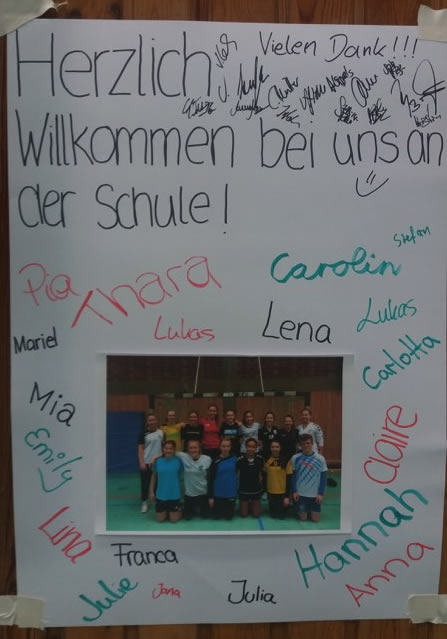 Vielen Dank!!!
Herzlich
Willkommen bei uns an
der Schule!
Stefan
Pia
Thara
Carolin
Lukas
Lena
Lukas
Mariel
Carlotta
Mia
Claire
Emily
Hannah
Lina
Franca
Anna
Julie
Jana
Julia